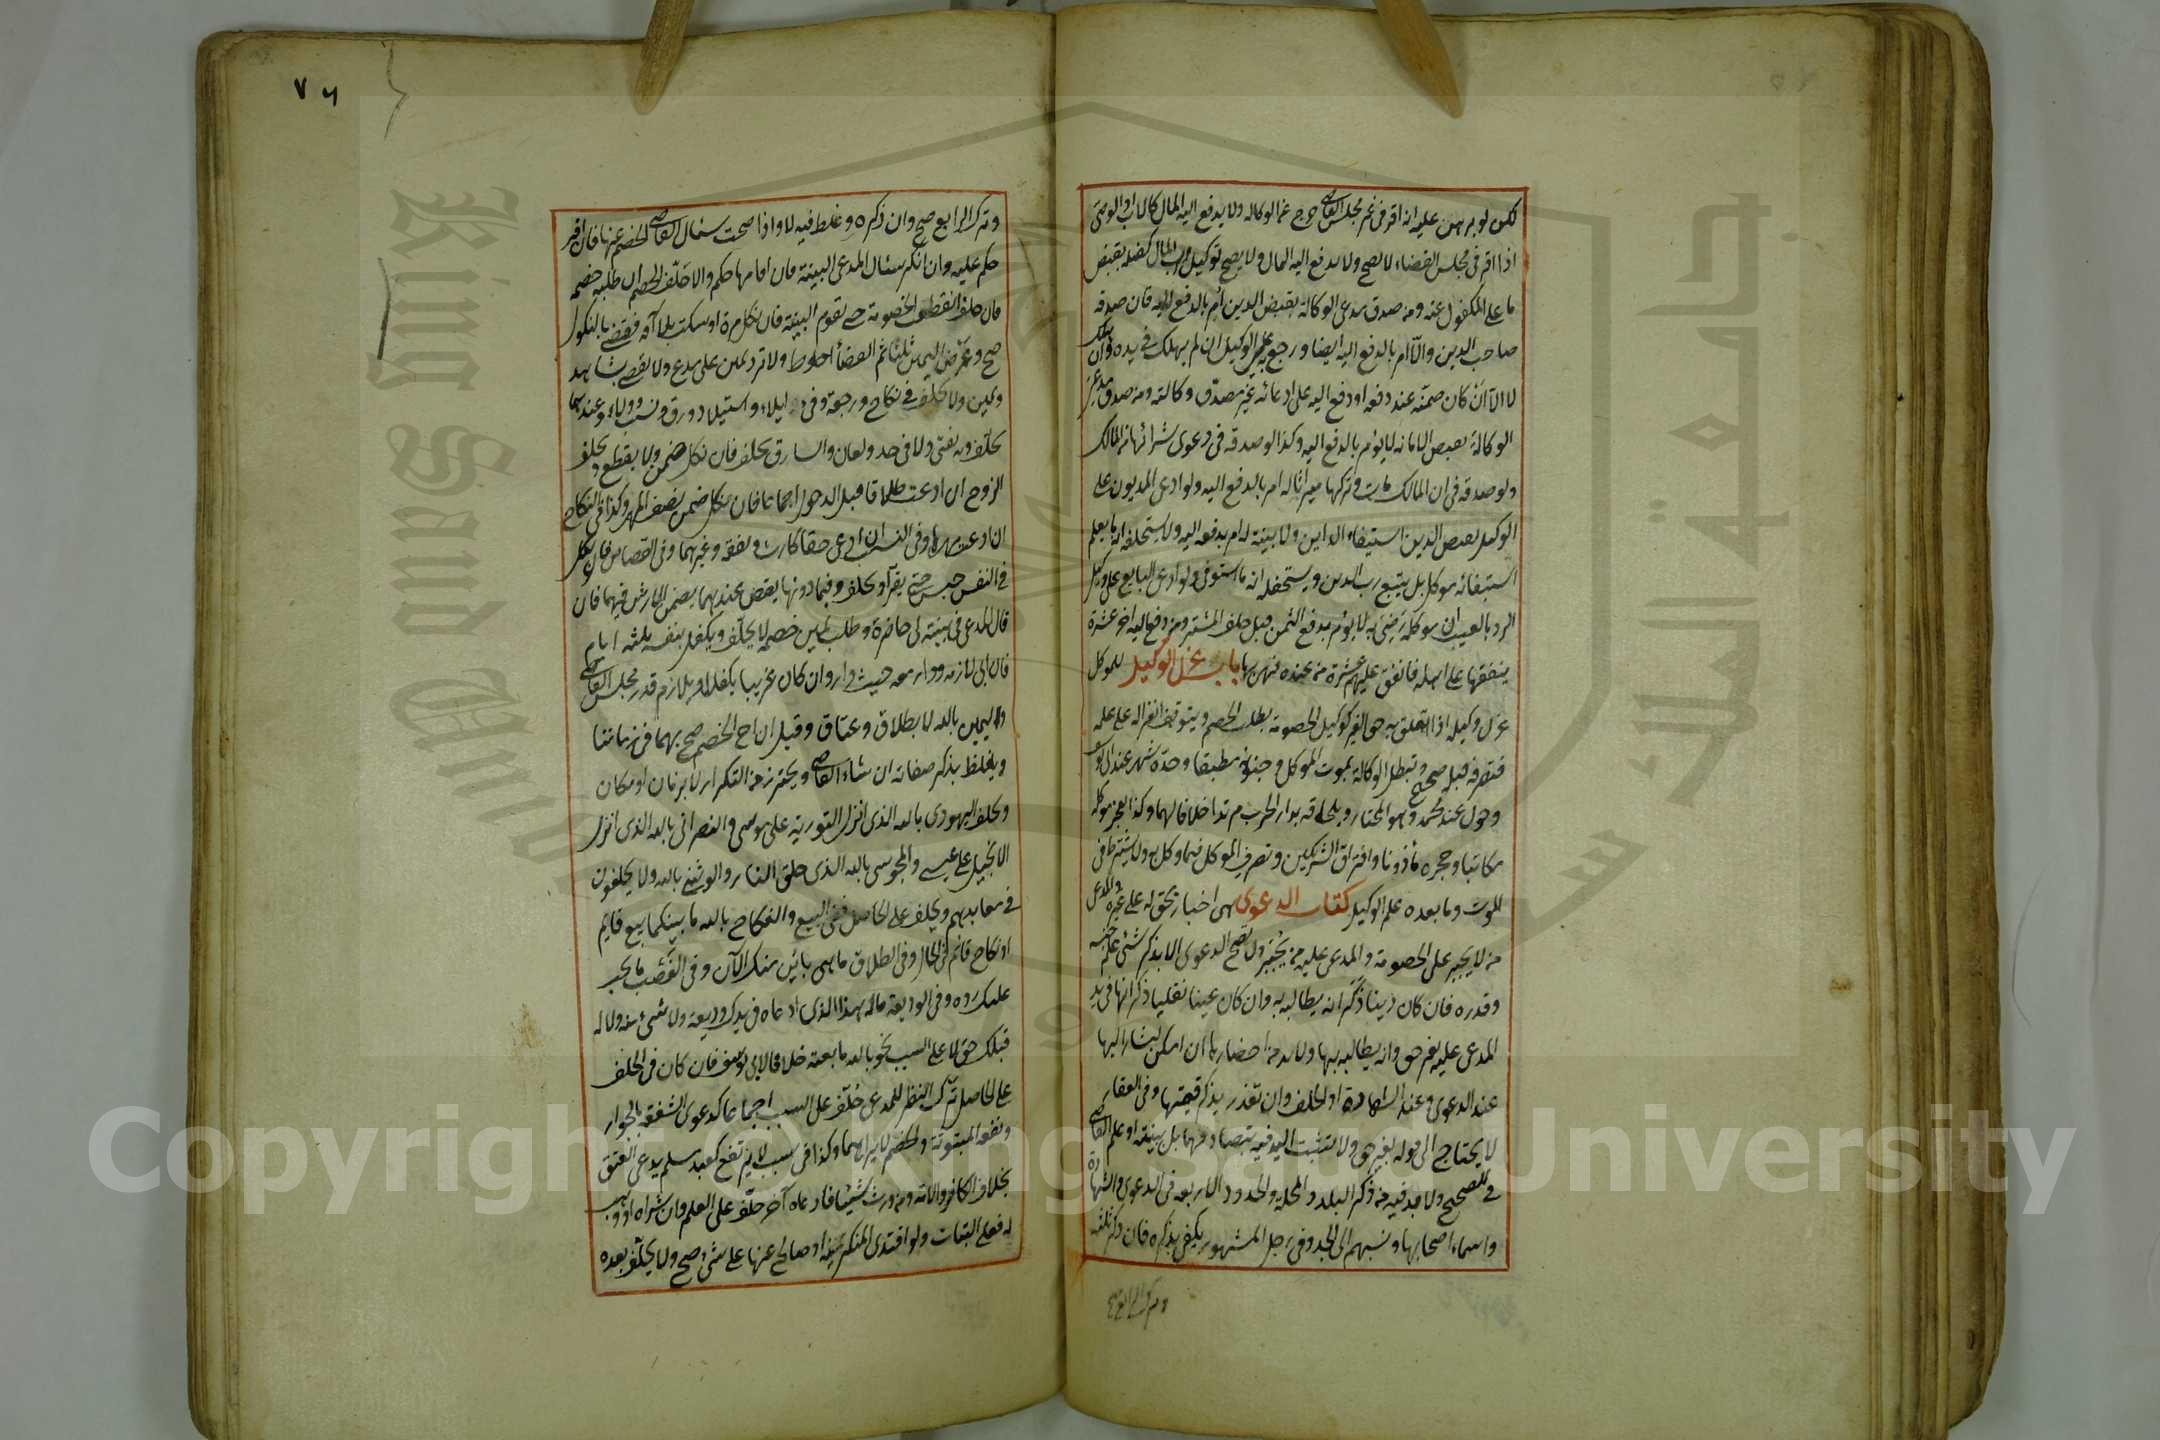 لكن لو برهن عليه انه اقر فى غير مجلس القاضى خرج عن الوكالة ولا يدفع اليه المال كالاب او الوصى
اذا اقر فى مجلس القضاء لا يصح ولا يدفع اليه المال ولا يصح توكيل رب المال كفيله بقبض
ما على المكفول عنه ومن صدق مدعى الوكالة بقبض الدين امر بالدفع اليه فان صدقه
صاحب الدين والا امر بالدفع اليه ايضا ورجع على الوكيل ان لم يهلك فى يده وان هلك
لا الا ان كان ضمنه عند دفعه او دفع اليه على ادعائه غير مصدق وكالته ومن صدق مدعى
الوكالة بقبض الامانة لا يؤمر بالدفع اليه وكذا لو صدقه فى دعوى شرائها من المالك
ولو صدقه فى ان المالك مات وتركها ميراثا له امر بالدفع اليه ولو ادعى المديون على
الوكيل بقبض الدين استيفاء الداين ولا بينة له امر بدفعه اليه ولا يستحلفه انه ما يعلم
استيفائه موكله بل يتبع رب الدين ويستحلفه انه ما استوفى ولو ادعى البايع على وكيل
الرد بالعيب ان موكله رضى به لا يؤمر بدفع الثمن قبل حلف المشترى ومن دفع اليه اخر عشرة
ينفقها على اهله فانفق عليهم عشرة من عنده فهى بها باب عزل الوكيل للموكل
عزل وكيله الا اذا تعلق به حق الغير كوكيل الخصومة بطلب الخصم ويتوقف انعزاله على علمه
فتصرفه قبله صحيح وتبطل الوكالة بموت الموكل وجنونه مطبقا وحده شهر عند ابى يوسف
وحول عند محمد وهو المختار وبلحاقه بدار الحرب مرتدا خلافا لهما وكذا بعجز موكله
مكاتبا وحجره مأذونا وافتراق الشريكين وتصرف الموكل فيما وكل به ولا يشترط فى
الموت وما بعده علم الوكيل كتاب الدعوى هى اخبار بحق له على غيره والمدعى
من لا يجبر على الخصومة والمدعى عليه من يجبر ولا تصح الدعوى الا بذكر شئ علم جنسه
وقدره فان كان دينا ذكر انه يطالبه به وان كان عينا نقليا ذكر انها فى يد
المدعى عليه بغير حق وانه يطالبه بها ولا بد من احضارها ان امكن ليشار اليها
عند الدعوى وعند الشهادة او الحلف وان تعذر يذكر قيمتها وفى العقار
لا يحتاج الى قوله بغير حق ولا تثبت اليد فيه بتصادقهما بل ببينة او علم القاضى
فى الصحيح ولا بد فيه من ذكر البلد والمحلة والحدود الاربعة فى الدعوى والشهادة
واسماء اصحابها ونسبهم الى الجد وفى رجل المشهور يكفى بذكره فان ذكر ثلثة
وترك الرابع صح
٧٦
وترك الرابع صح وان ذكره وغلط فيه لا واذا صحت سئال القاضى الخصم عنها فان اقر
حكم عليه وان انكر سئال المدعى البينة فان اقامها حكم والا حلف الخصم ان طلبه خصمه
فان حلف انقطعت الخصومة حتى تقوم البينة فان نكل مرة او سكت بلا آفة فقضى بالنكول
صح وعرض اليمين ثلثا ثم القضاء احوط ولا ترد يمين على مدع ولا يقضى بشاهد
ويمين ولا يحلف فى نكاح ورجعة وفئ ايلاء واستيلاد ورق ونسب وولاء وعندهما
يحلف وبه يفتى ولا فى حد ولعان والسارق يحلف فان نكل ضمن ولا يقطع ويحلف
الزوج ان ادعت طلاقا قبل الدخول اجماعا فان نكل ضمن نصف المهر وكذا فى النكاح
ان ادعت مهرها وفى النسب ان ادعى حقا كارث ونفقة وغيرهما وفى القصاص فان نكل
فى النفس حبس حتى يقر او يحلف وفيما دونها يقتص وعندهما يضمن الارش فيهما فان
قال المدعى فى بينته لى حاضرة وطلب يمين خصمه لا يحلف ويكفل بنفسه ثلثة ايام
فان ابى لازمه ودار معه حيث دار وان كان غريبا يكفل او يلازم قدر مجلس القاضى
واليمين بالله لا بطلاق وعتاق وقيل ان الح الخصم صح بهما فى زماننا
ويغلظ بذكر صفاته ان شاء القاضى ويحترز من التكرار لا بزمان او مكان
ويحلف اليهودى بالله الذى انزل التورية على موسى والنصرانى بالله الذى انزل
الانجيل على عيسى والمجوسى بالله الذى خلق النار والوثنى بالله ولا يحلفون
فى معابدهم ويحلف على الحاصل ففى البيع والنكاح بالله ما بينكما بيع قايم
او نكاح قائم فى الحال وفى الطلاق ما هى بائن منك الآن وفى الغصب ما يجب
عليك رده وفى الوديعة ماله هذا الذى ادعاه فى يدك وديعة ولا شئ منه ولا له
قبلك حق لا على السبب نحو بالله ما بعته خلافا لابى يوسف فان كان فى الحلف
على الحاصل ترك النظر للمدعى حلف على السبب اجماعا كدعوى الشفعة بالجوار
ونفقة المبتوتة والخصم لا يراهما وكذا فى سبب لا يرتفع كعبد مسلم يدعى العتق
بخلاف الكافر والامة ومن ورث شيئا فادعاه آخر حلف على العلم وان شراه او وهب
له فعلى البتات ولو افتدى المنكر يمينه او صالح عنها على شئ صح ولا يحلف بعده
King Saud University
Copyright © King Saud University